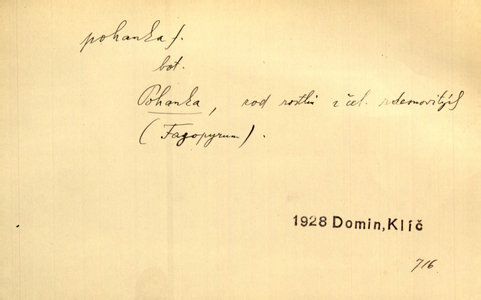 pohanka f.
bot.
Pohanka, rod rostlin z čel. rdesnovitých
(Fagopyrum).
1928 Domin, Klíč
716.